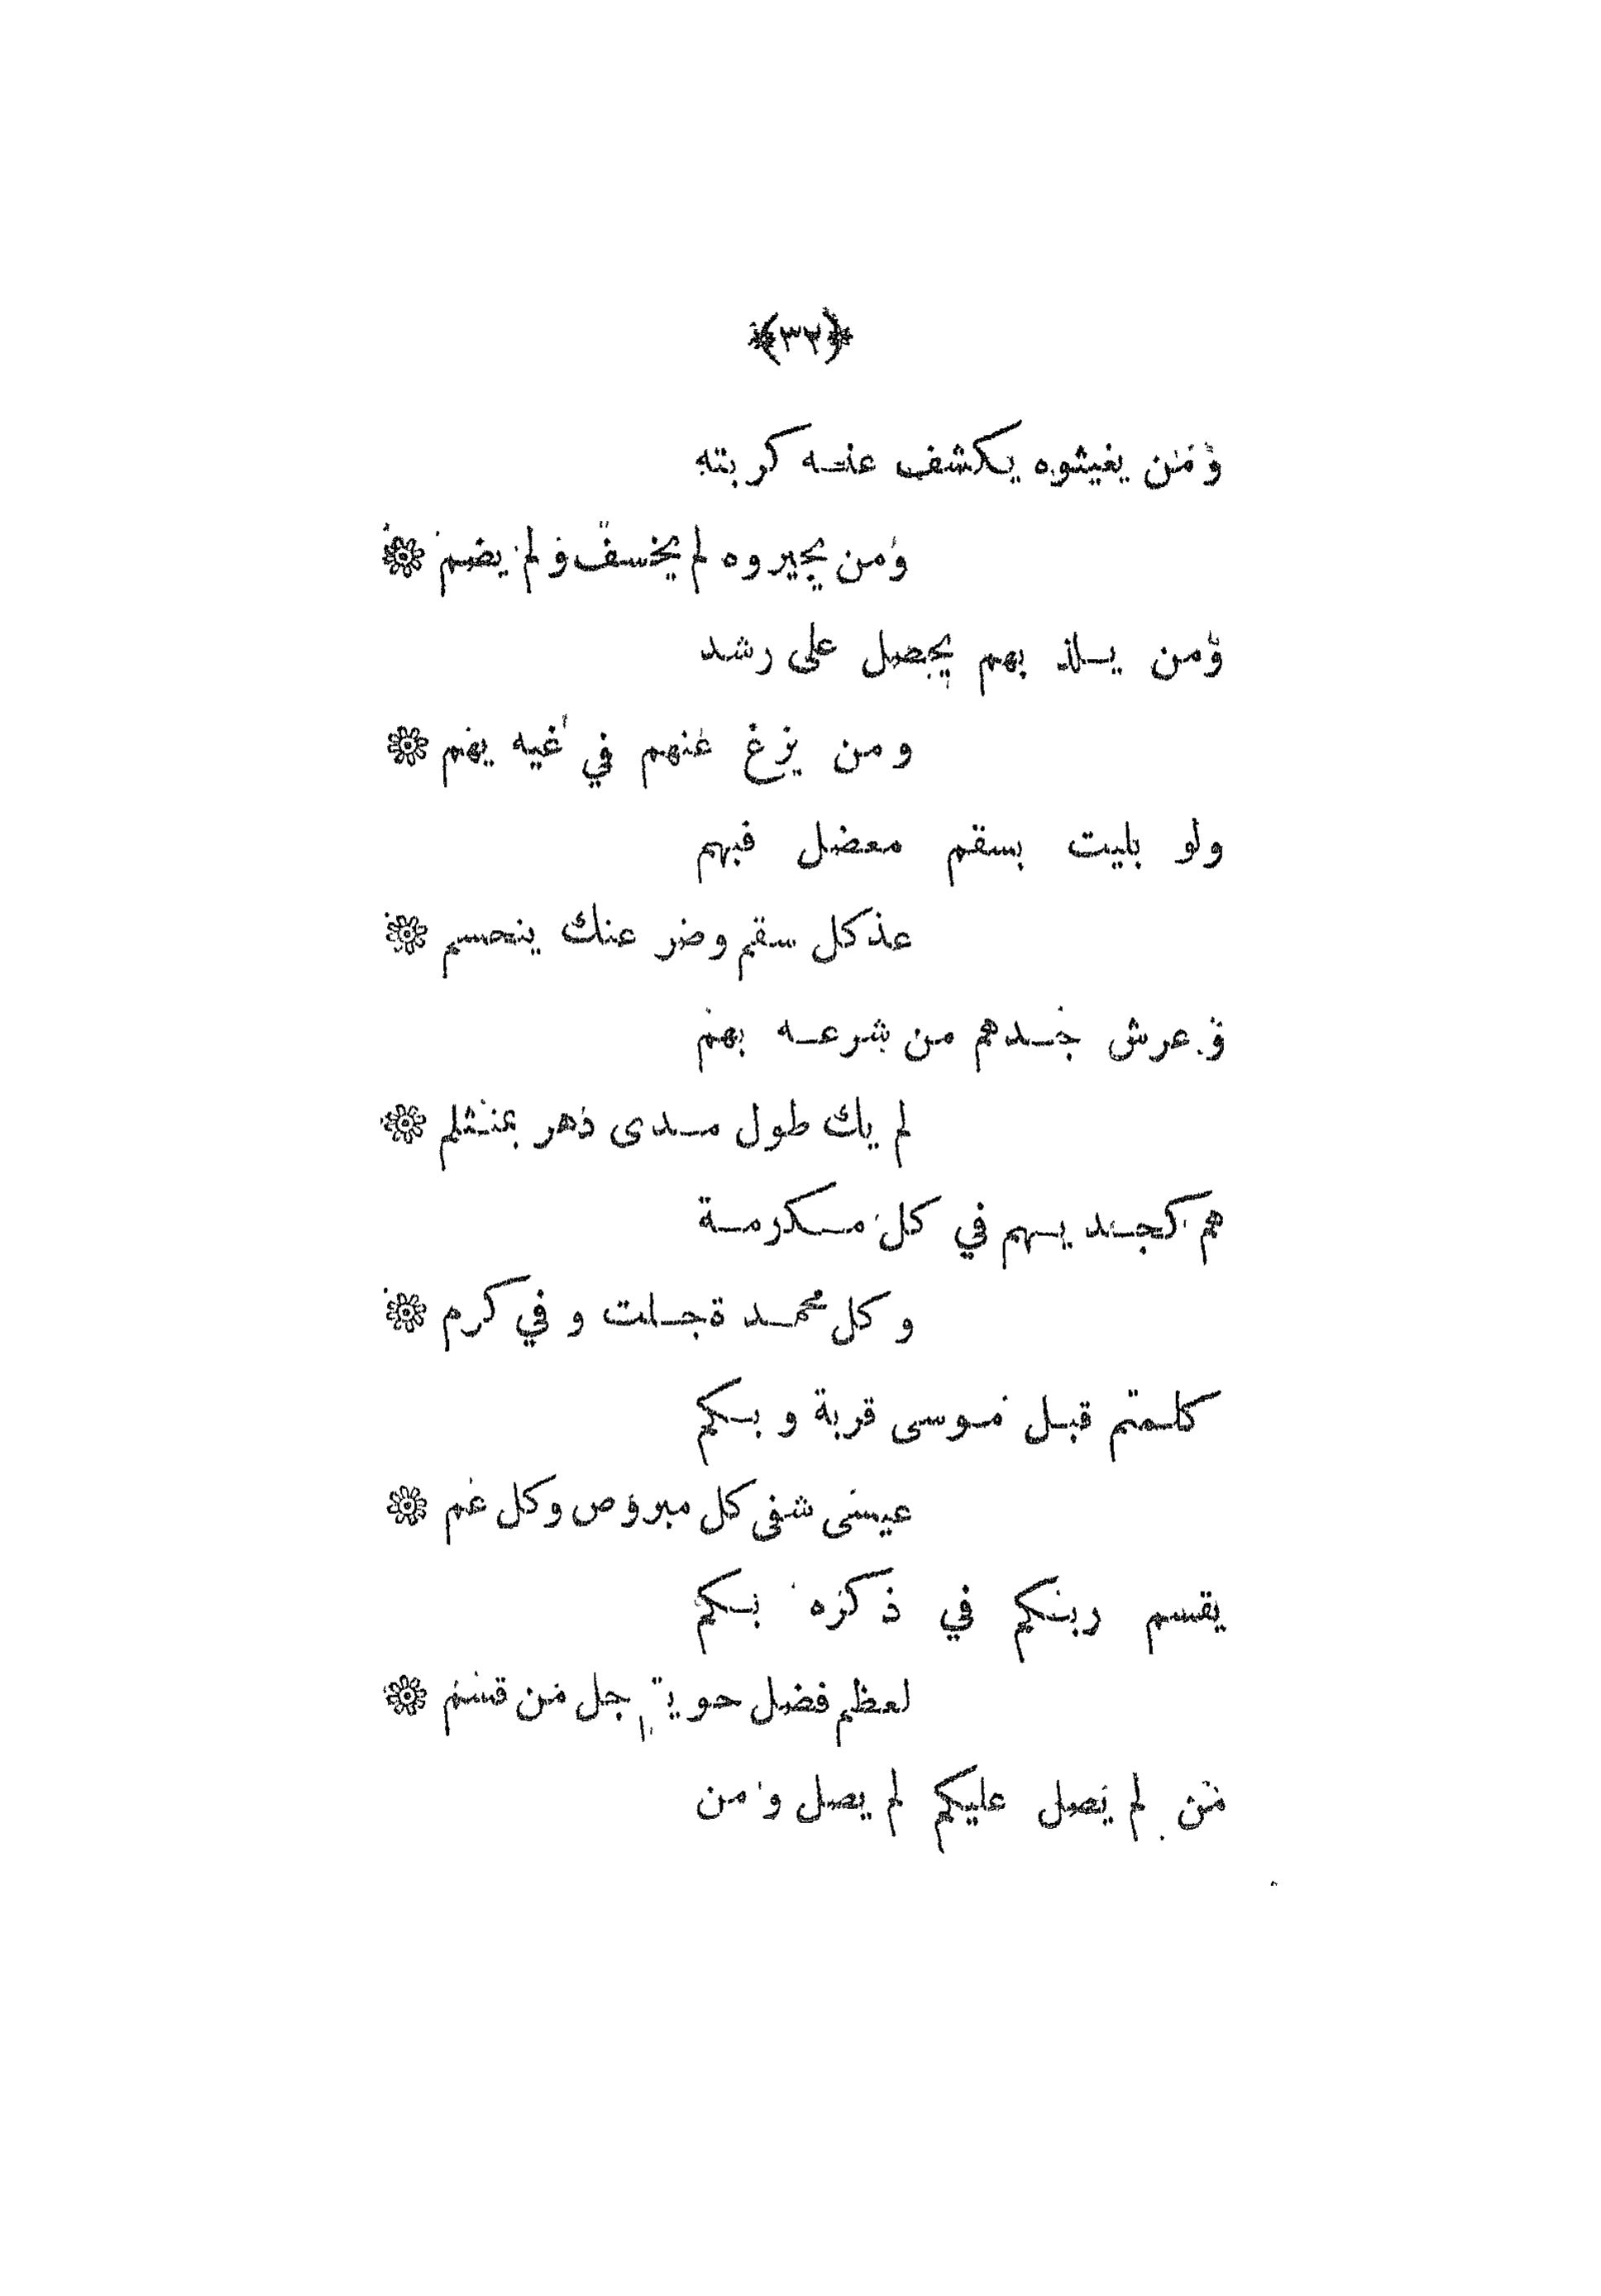 ﴿٣٢﴾
ومن يغيثوه يكشف عنه كربته
ومن يجيروه لم يخسف ولم يضم
ومن يلذ بهم يحصل على رشد
ومن يزغ عنهم في غيه يهم
ولو بليت بسقم معضل فبهم
عذ كل سقم وضر عنك ينحسم
وعرش جدهم من شرعه بهم
لم يك طول مدى دهر بمنثلم
هم كجد يهم في كل مكرمة
وكل محمدة جلت وفي كرم
كلمتم قبل موسى قربة وبكم
عيسى شفى كل مبروص وكل عم
يقسم ربكم في ذكره بكم
لعظم فضل حويتم جل من قسم
من لم يصل عليكم لم يصل ومن